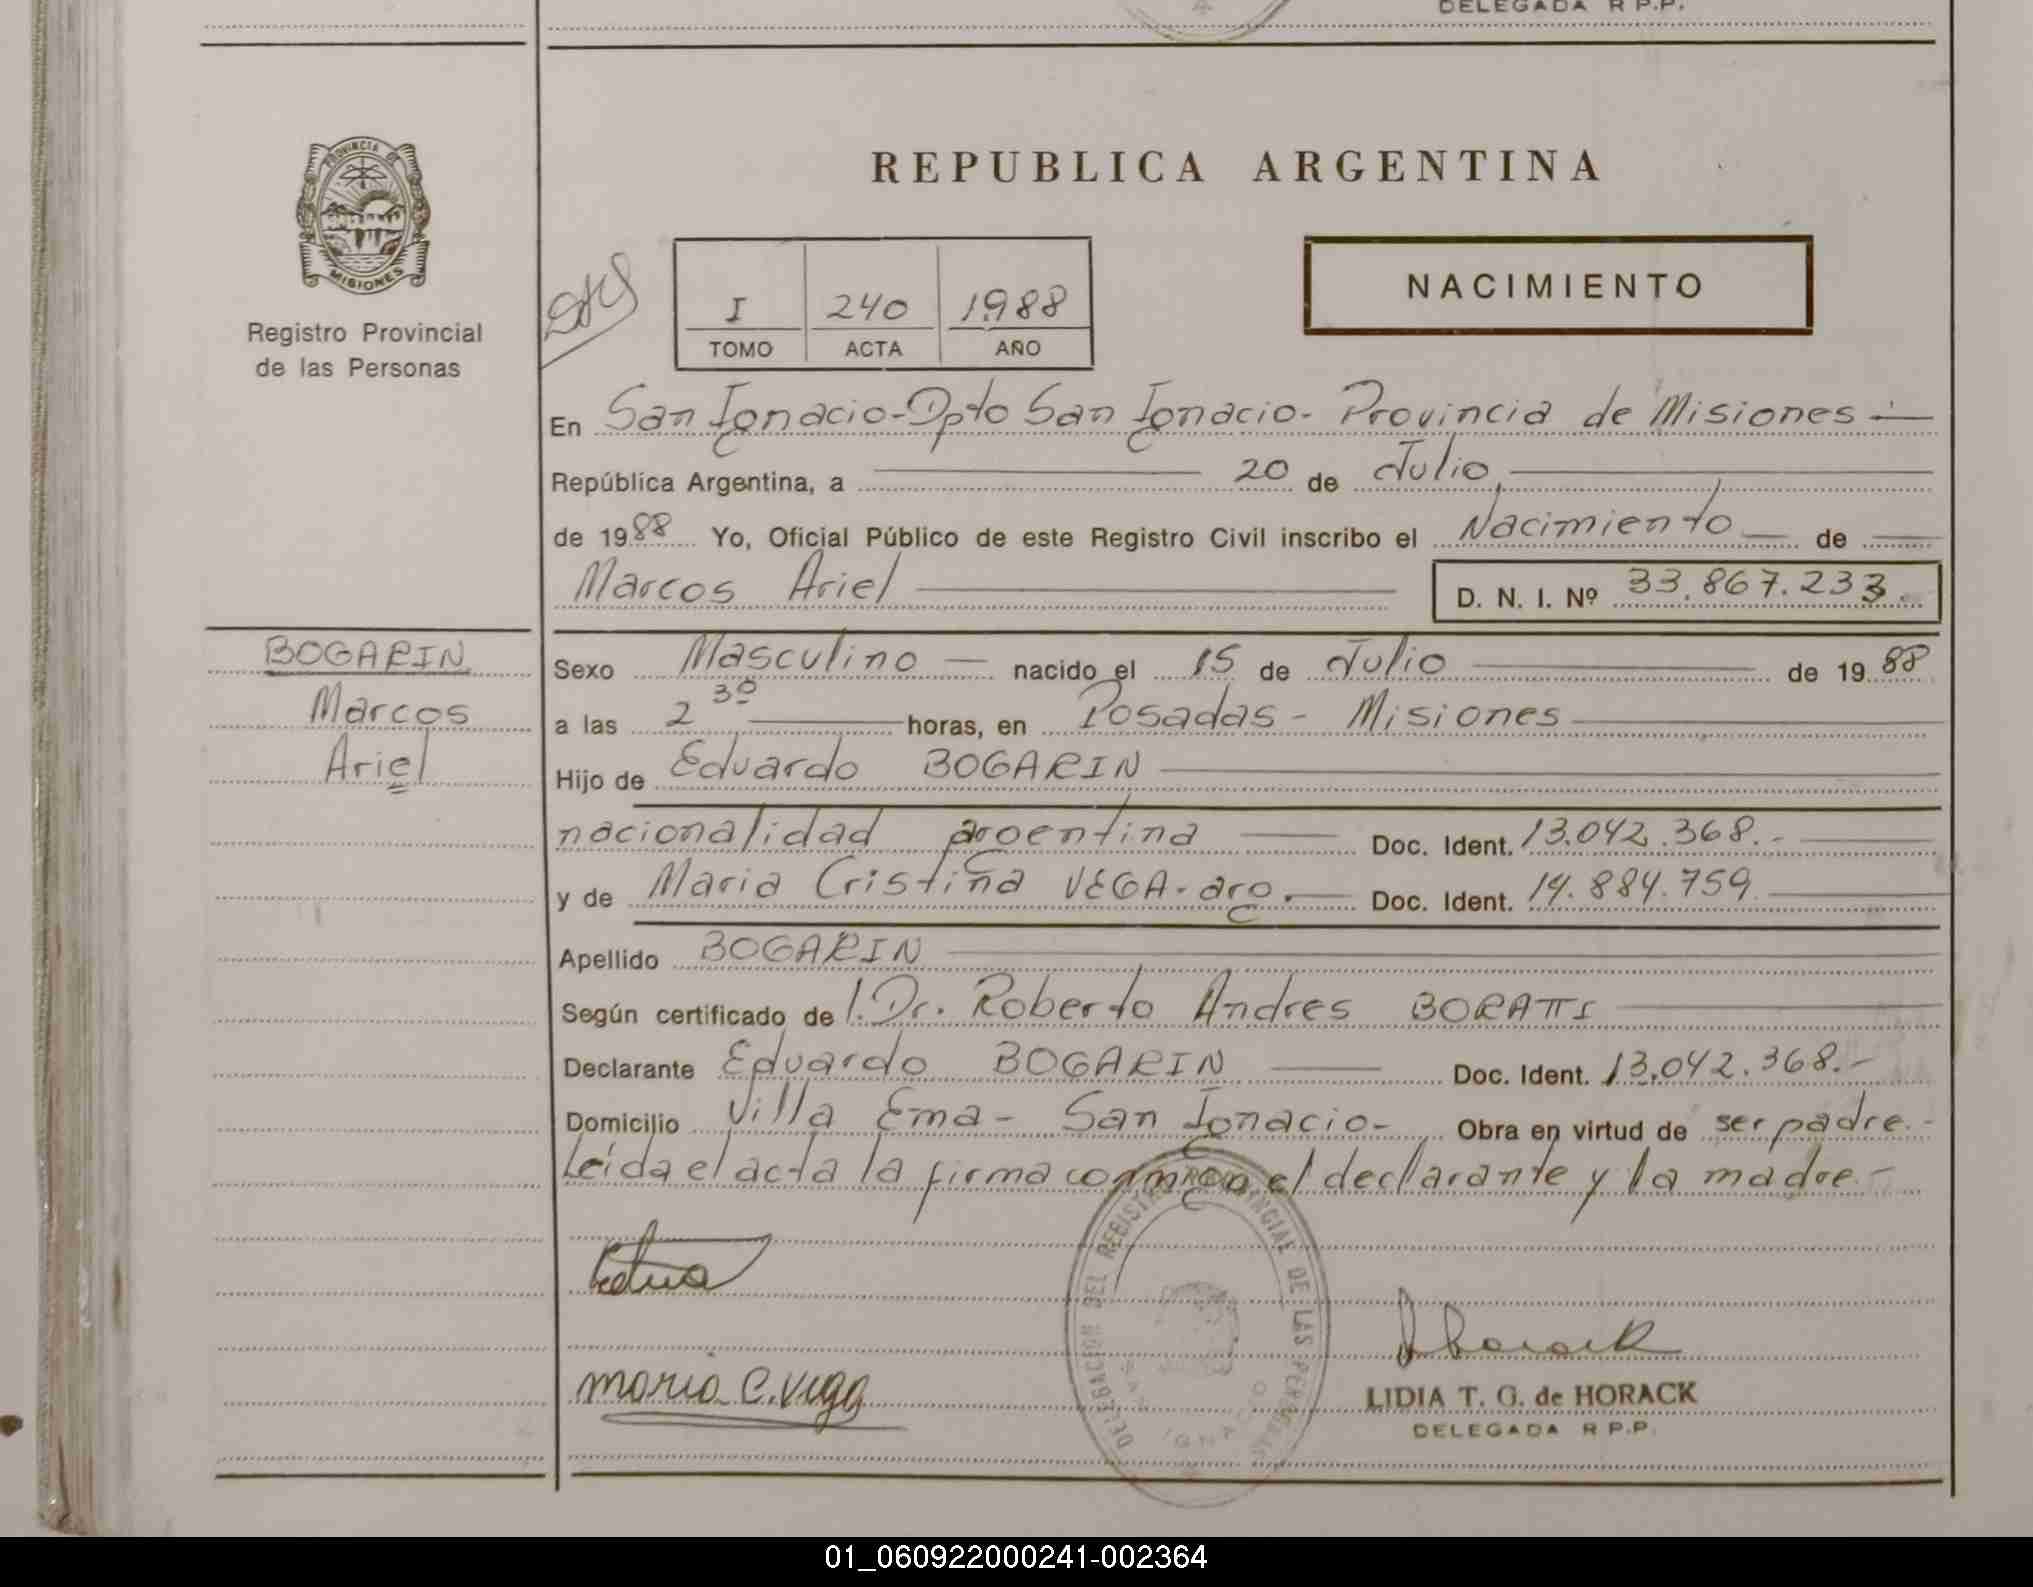 DELEGADA R P.P.
REPUBLICA ARGENTINA
PROVINCIA DE
MISIONES
Registro Provincial
de las Personas
I 240 1988
TOMO ACTA AÑO
NACIMIENTO
En San Ignacio-Dpto San Ignacio- Provincia de Misiones-
República Argentina, a 20 de Julio,
de 1988 Yo, Oficial Público de este Registro Civil inscribo el Nacimiento de
Marcos Ariel D. N. I. Nº 33.867.233.
BOGARIN
Marcos
Ariel
Sexo Masculino - nacido el 15 de Julio de 1988
a las 2 30 horas, en Posadas - Misiones
Hijo de Eduardo BOGARIN
nacionalidad argentina Doc. Ident. 13.042.368.-
y de Maria Cristina VEGA-arg. Doc. Ident. 14.884.759
Apellido BOGARIN
Según certificado de l. Dr. Roberto Andres BORATTI
Declarante Eduardo BOGARIN Doc. Ident. 13.042.368.-
Domicilio Villa Ema- San Ignacio- Obra en virtud de ser padre.-
Leida el acta la firma conmigo el declarante y la madre.-
DELEGACION DEL REGISTRO PROVINCIAL DE LAS PERSONAS
SAN IGNACIO
maria C. Vega
LHorack
LIDIA T. G. de HORACK
DELEGADA R P.P.
01_060922000241-002364